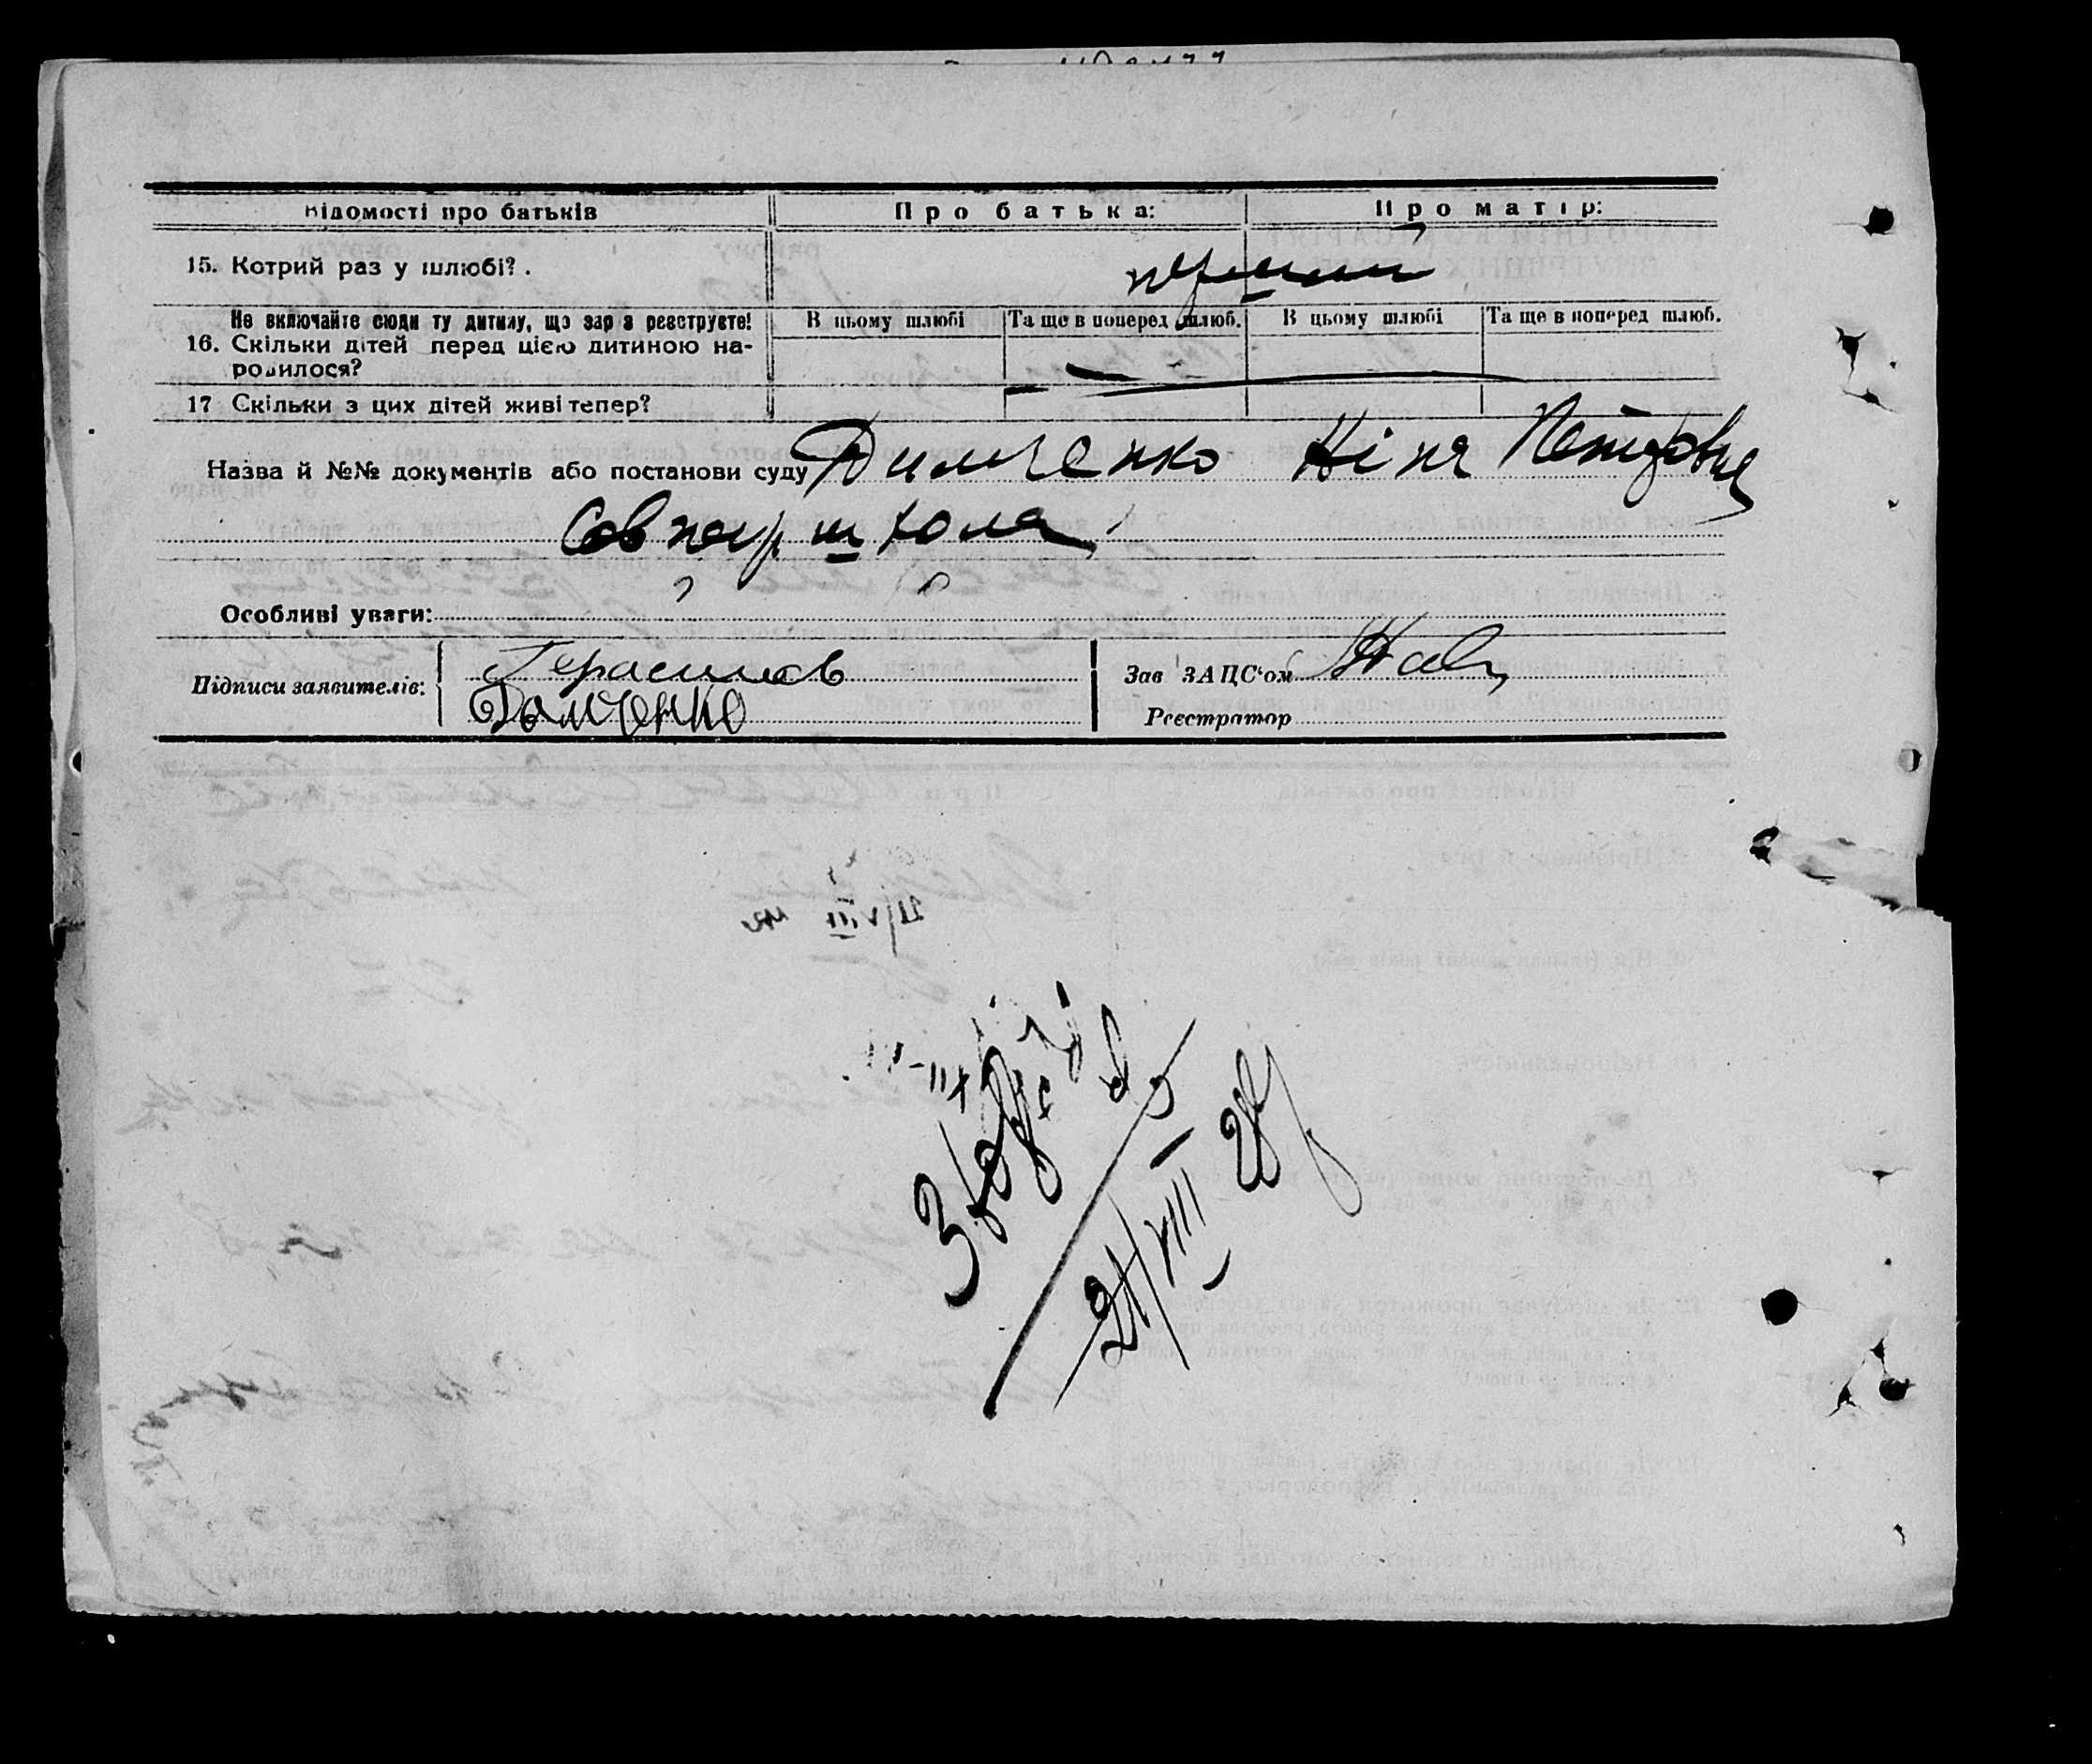 Відомості про батьків Про батька: Про матір:
15. Котрий раз у шлюбі? . перший
Не включайте сюди ту дитину, що зараз реєструєте! В цьому шлюбі Та ще в поперед. шлюб. В цьому шлюбі Та ще в поперед. шлюб.
16. Скільки дітей перед цією дитиною на-
родилося? —
17 Скільки з цих дітей живі тепер? —
Назва й №№ документів або постанови суду Димченко Ніна Петровна
Совпартшкола
Особливі уваги:
Підписи заявителів: Герасимов Зав ЗАЦС'ом
Димченко Реєстратор
21/VIII 28